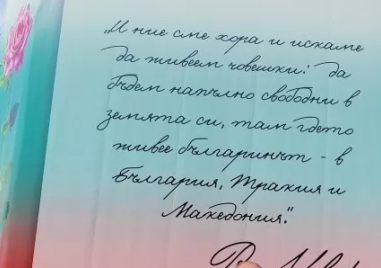 „И ние сме хора и искаме
да живеем човешки: да
бъдем напълно свободни в
земята си, там гдето
живее българинът - в
България, Тракия и
Македония."